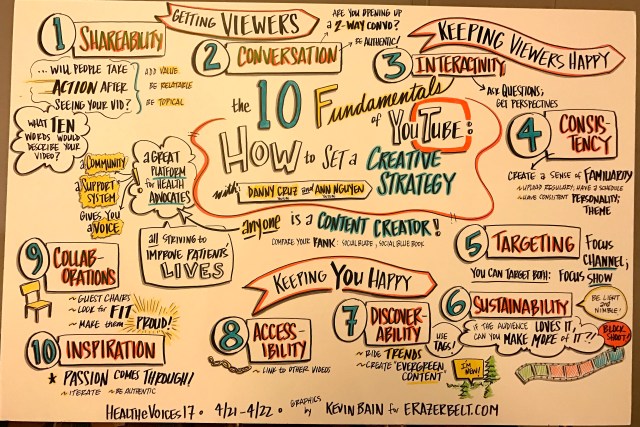 GETTING VIEWERS
1 SHAREABILITY
... WILL PEOPLE TAKE
ACTION AFTER
SEEING YOUR VID?
ADD VALUE
BE RELATABLE
BE TOPICAL
WHAT TEN
WORDS WOULD
DESCRIBE YOUR
VIDEO?
2 CONVERSATION
ARE YOU OPENING UP
a 2-WAY CONVO?
BE AUTHENTIC!
KEEPING VIEWERS HAPPY
3 INTERACTIVITY
ASK QUESTIONS;
GET PERSPECTIVES
4 CONSIS-
TENCY
CREATE a SENSE of FAMILIARITY
~ UPLOAD REGULARLY; HAVE a SCHEDULE
~ HAVE CONSISTENT PERSONALITY;
THEME
the 10 Fundamentals
of YouTUBE:
HOW to SET a
CREATIVE
STRATEGY
with DANNY CRUZ and ANN NGUYEN
anyone IS a CONTENT CREATOR!
COMPARE YOUR RANK: SOCIALBLADE, SOCIALBLUEBOOK
a COMMUNITY
a SUPPORT
SYSTEM
GIVES YOU
a VOICE
a GREAT
PLATFORM
for HEALTH
ADVOCATES
all STRIVING to
IMPROVE PATIENTS'
LIVES
5 TARGETING
FOCUS
CHANNEL;
YOU CAN TARGET BOTH: FOCUS SHOW
KEEPING YOU HAPPY
6 SUSTAINABILITY
BE LIGHT
and
NIMBLE!
IF THE AUDIENCE LOVES IT,
CAN YOU MAKE MORE of IT?!
BLOCK
SHOOT!
7 DISCOVER-
ABILITY
USE
TAGS!
~ RIDE TRENDS
~ CREATE "EVERGREEN"
CONTENT
I'M
NEW!
8 ACCESS-
IBILITY
~ LINK to OTHER VIDEOS
9 COLLAB-
ORATIONS
~ GUEST CHAIRS
~ LOOK for FIT
~ MAKE them PROUD!
10 INSPIRATION
* PASSION COMES THROUGH!
~ ITERATE ~ BE AUTHENTIC
HEALTHeVOICES17 • 4/21-4/22 • GRAPHICS by KEVIN BAIN for ERAZERBELT.COM